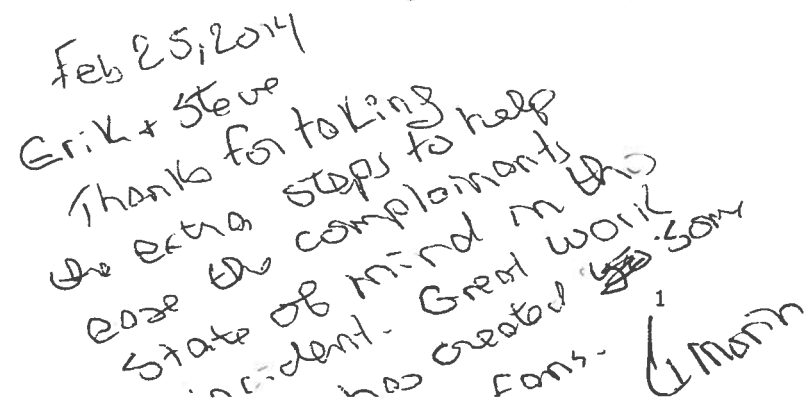 Feb 25, 2014
Erik + Steve
Thanks for taking
the extra steps to help
ease the complainants
state of mind in this
incident. Great work
has created some
fans.
1
Marin